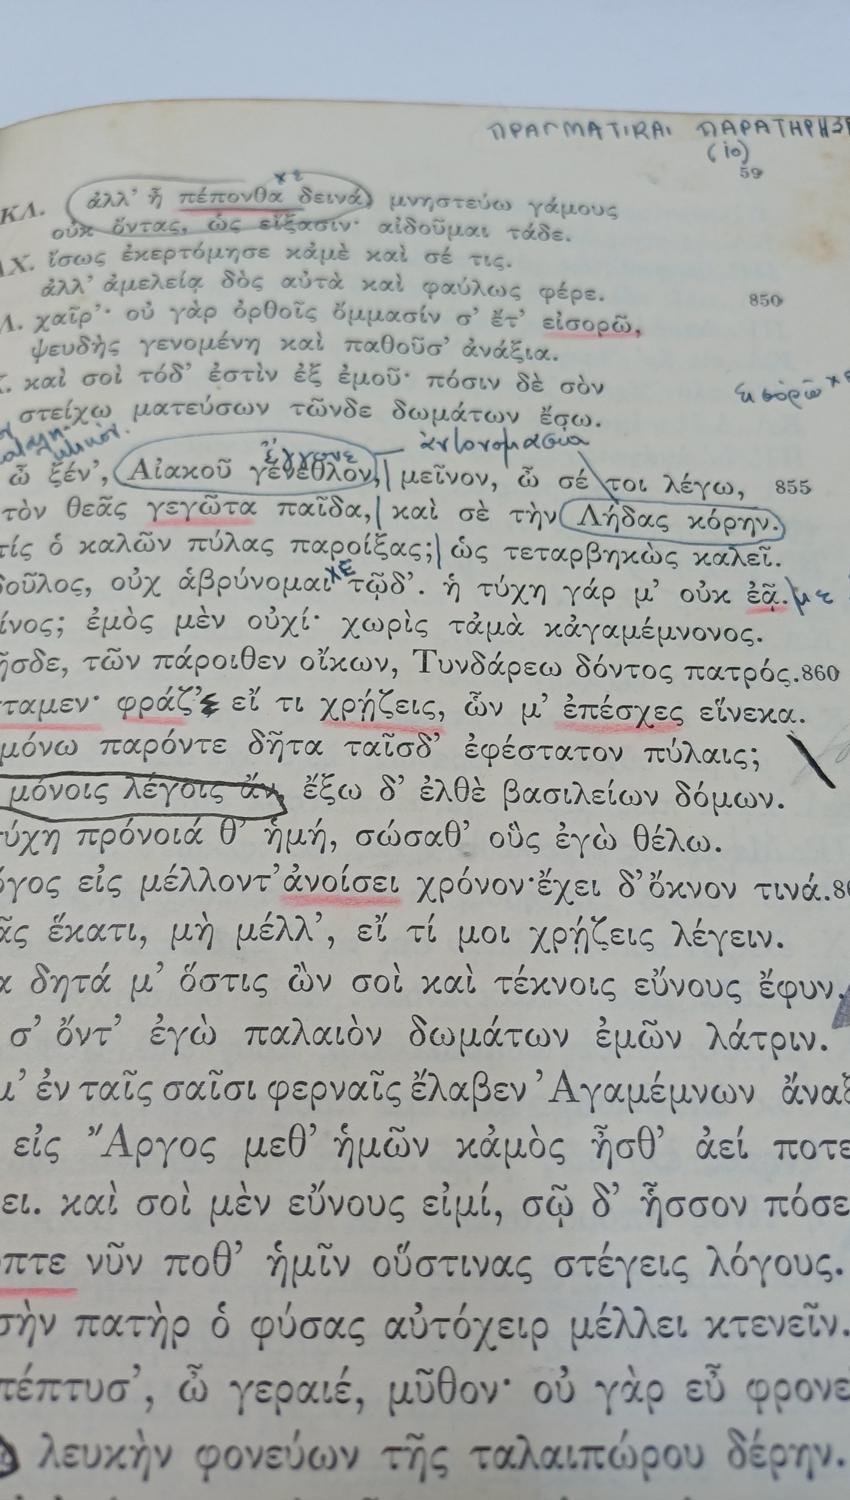 ΠΡΑΓΜΑΤΙΚΑΙ ΠΑΡΑΤΗΡΗΣ
(ιο)
59
ΚΛ. ἀλλ’ ἦ πέπονθα δεινά; μνηστεύω γάμους
οὐκ ὄντας, ὡς εἴξασιν· αἰδοῦμαι τάδε.
ΑΧ. ἴσως ἐκερτόμησε κἀμὲ καὶ σέ τις.
ἀλλ’ ἀμελείᾳ δὸς αὐτὰ καὶ φαύλως φέρε. 850
Λ. χαῖρ’· οὐ γὰρ ὀρθοῖς ὄμμασίν σ’ ἔτ’ εἰσορῶ,
ψευδὴς γενομένη καὶ παθοῦσ’ ἀνάξια.
καὶ σοὶ τόδ’ ἐστὶν ἐξ ἐμοῦ· πόσιν δὲ σὸν
εἰσορῶ
στείχω ματεύσων τῶνδε δωμάτων ἔσω.
ἔγγονε ἀντονομασία
ὦ ξέν’, Αἰακοῦ γένεθλον, μεῖνον, ὦ σέ τοι λέγω, 855
τὸν θεᾶς γεγῶτα παῖδα, καὶ σὲ τὴν Λήδας κόρην.
τίς ὁ καλῶν πύλας παροίξας; ὡς τεταρβηκὼς καλεῖ.
δοῦλος, οὐχ ἁβρύνομαι τῷδ’. ἡ τύχη γάρ μ’ οὐκ ἐᾷ. με
ίνος; ἐμὸς μὲν οὐχί· χωρὶς τἀμὰ κἀγαμέμνονος.
ῆσδε, τῶν πάροιθεν οἴκων, Τυνδάρεω δόντος πατρός. 860
ταμεν· φράζ’ εἴ τι χρῄζεις, ὧν μ’ ἐπέσχες εἵνεκα.
μόνω παρόντε δῆτα ταῖσδ’ ἐφέστατον πύλαις;
μόνοις λέγοις ἄν, ἔξω δ’ ἐλθὲ βασιλείων δόμων.
ύχη πρόνοιά θ’ ἡμή, σώσαθ’ οὓς ἐγὼ θέλω.
όγος εἰς μέλλοντ’ ἀνοίσει χρόνον· ἔχει δ’ ὄκνον τινά. 86
ᾶς ἕκατι, μὴ μέλλ’, εἴ τί μοι χρῄζεις λέγειν.
α δητά μ’ ὅστις ὢν σοὶ καὶ τέκνοις εὔνους ἔφυν,
σ’ ὄντ’ ἐγὼ παλαιὸν δωμάτων ἐμῶν λάτριν.
μ’ ἐν ταῖς σαῖσι φερναῖς ἔλαβεν Ἀγαμέμνων ἄναξ
εἰς Ἄργος μεθ’ ἡμῶν κἀμὸς ἦσθ’ ἀεί ποτε
ει. καὶ σοὶ μὲν εὔνους εἰμί, σῷ δ’ ἧσσον πόσε
πτε νῦν ποθ’ ἡμῖν οὕστινας στέγεις λόγους.
σὴν πατὴρ ὁ φύσας αὐτόχειρ μέλλει κτενεῖν.
πέπτυσ’, ὦ γεραιέ, μῦθον· οὐ γὰρ εὖ φρονε
λευκὴν φονεύων τῆς ταλαιπώρου δέρην.